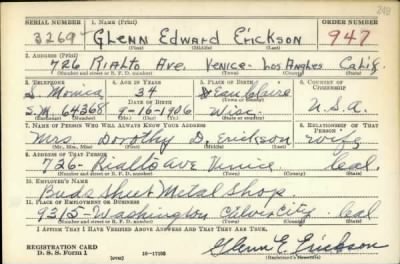 249
SERIAL NUMBER 1. NAME (Print) ORDER NUMBER
3269 Glenn Edward Erickson 947
(First) (Middle) (Last)
2. ADDRESS (Print)
726 Rialto Ave. Venice - Los Angles Calif.
(Number and street or R. F. D. number) (Town) (County) (State)
3. TELEPHONE 4. AGE IN YEARS 5. PLACE OF BIRTH 6. COUNTRY OF CITIZENSHIP
S. Monica 34 Eau Claire
DATE OF BIRTH (Town or county)
S.M. 64368 9-16-1906 Wisc. U.S.A.
7. NAME OF PERSON WHO WILL ALWAYS KNOW YOUR ADDRESS 8. RELATIONSHIP OF THAT PERSON
Mrs Dorothy D. Erickson wife
(Mr., Mrs., Miss) (First) (Middle) (Last)
9. ADDRESS OF THAT PERSON
726 - Rialto Ave Venice Cal.
(Number and street or R. F. D. number) (Town) (County) (State)
10. EMPLOYER'S NAME
Sheet Metal Shop
11. PLACE OF EMPLOYMENT OR BUSINESS
9315 - Washington Culver City. Cal
(Number and street or R. F. D. number) (Town) (County) (State)
I AFFIRM THAT I HAVE VERIFIED ABOVE ANSWERS AND THAT THEY ARE TRUE.
REGISTRATION CARD
D. S. S. Form 1 16-17105 Glenn E. Erickson
(Registrant's Signature)